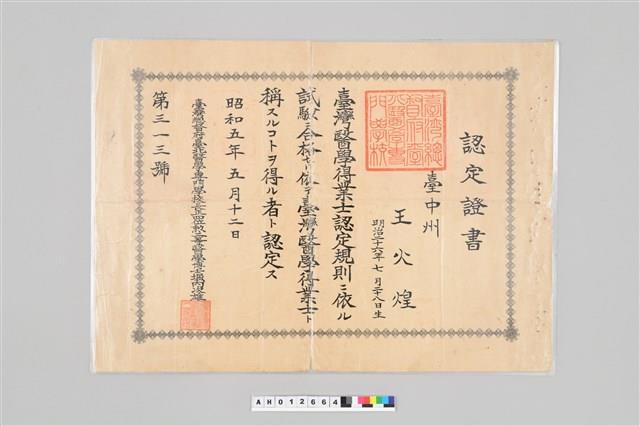 認定證書
臺中州
王火煌
明治三十六年七月二十八日生
臺灣醫學得業士認定規則ニ依ル
試驗ニ合格セリ依テ臺灣醫學得業士ト
稱スルコトヲ得ル者ト認定ス
昭和五年五月十二日
臺灣總督府臺北醫學專門學校長正四位勳三等醫學博士堀內次雄
第三一三號
臺灣總督府臺北醫學專門學校
AH012664